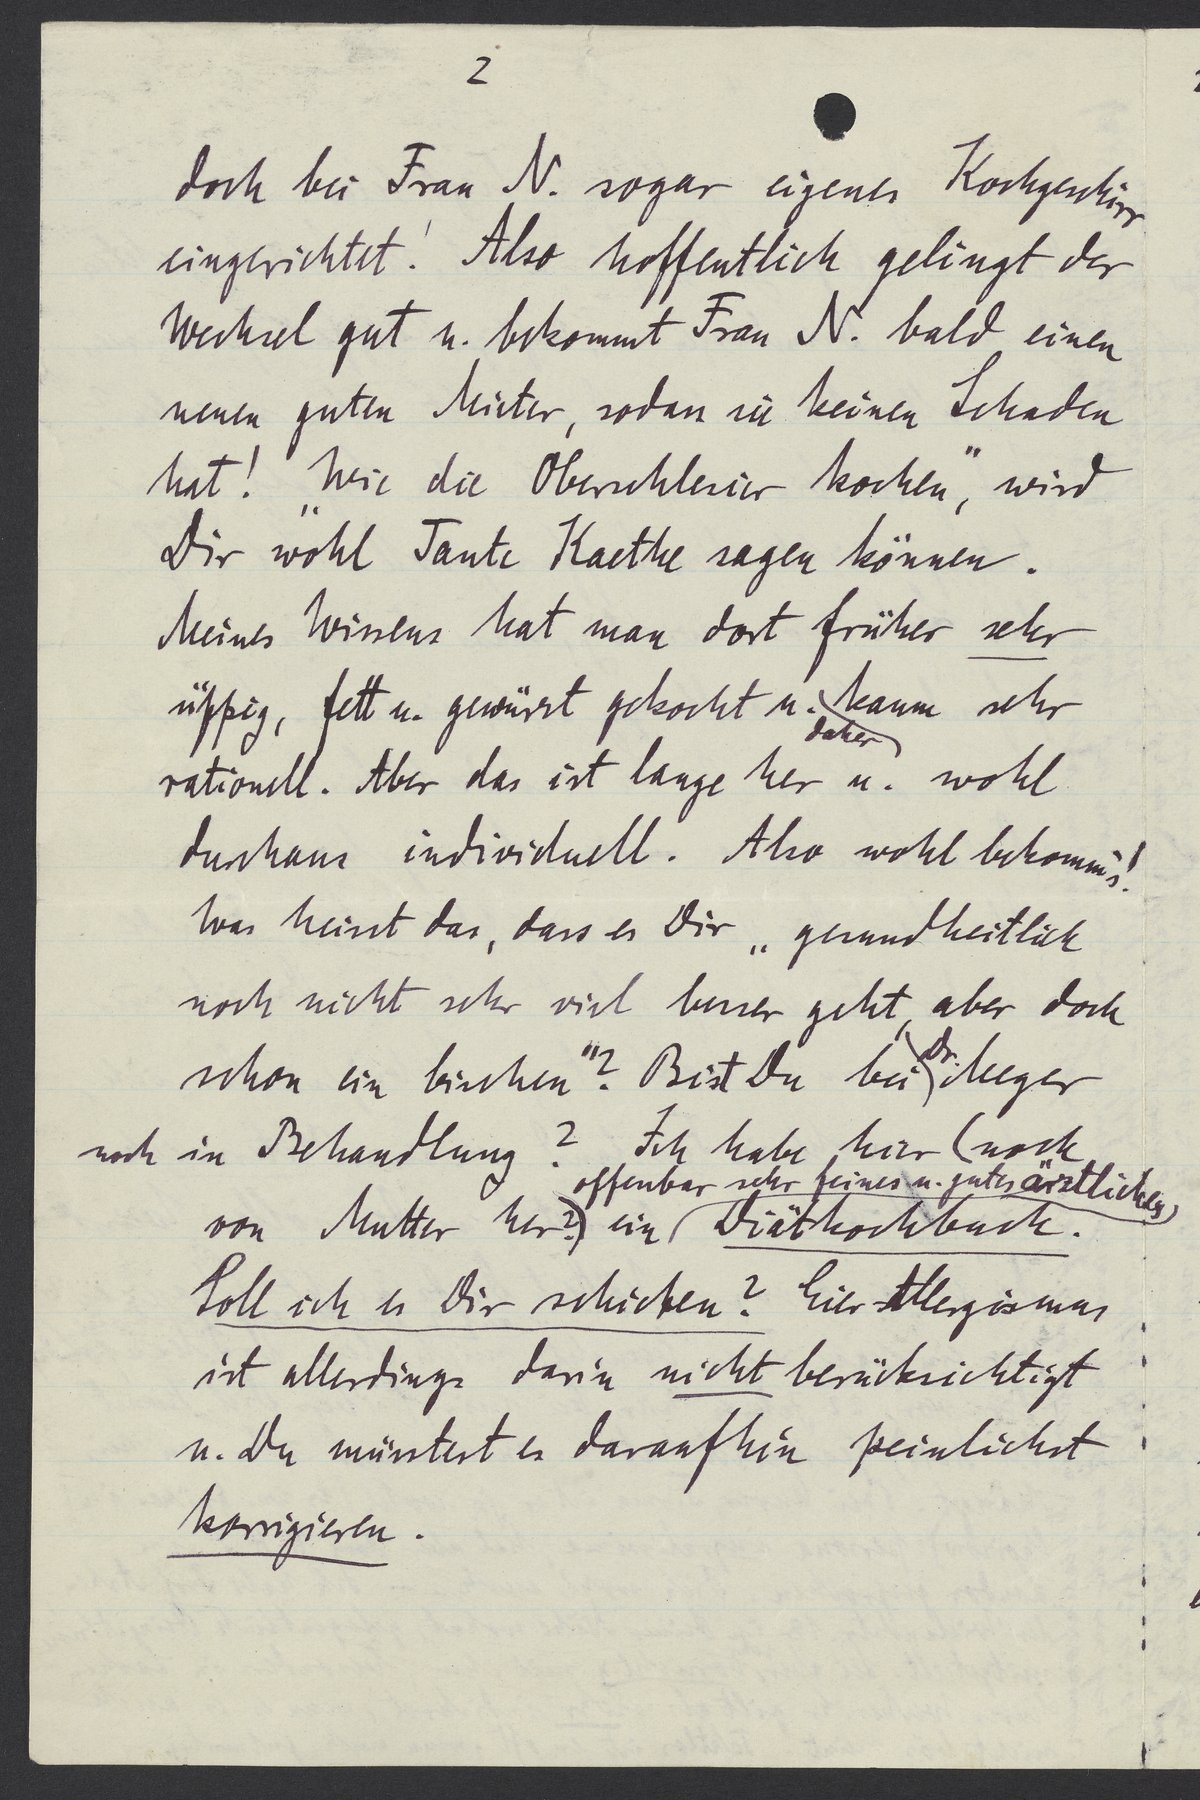 2
doch bei Frau N. sogar eigenes Kochgeschirr
eingerichtet! Also hoffentlich gelingt der
Wechsel gut u. bekommt Frau N. bald einen
neuen guten Mieter, sodass sie keinen Schaden
hat! „Wie die Oberschlesier kochen", wird
Dir wohl Tante Kaethe sagen können.
Meines Wissens hat man dort früher sehr
üppig, fett u. gewürzt gekocht u. daher kaum sehr
rationell. Aber das ist lange her u. wohl
durchaus individuell. Also wohl bekomm's!
Was heisst das, dass es Dir „gesundheitlich
noch nicht sehr viel besser geht, aber doch
schon ein bischen"? Bist Du bei Dr. Meger
noch in Behandlung? Ich habe hier (noch
von Mutter her?) ein offenbar sehr feines u. gutes ärztliches Diätkochbuch.
Soll ich es Dir schicken? Eier-Allergismus
ist allerdings darin nicht berücksichtigt
u. Du müsstest es daraufhin peinlichst
korrigieren.